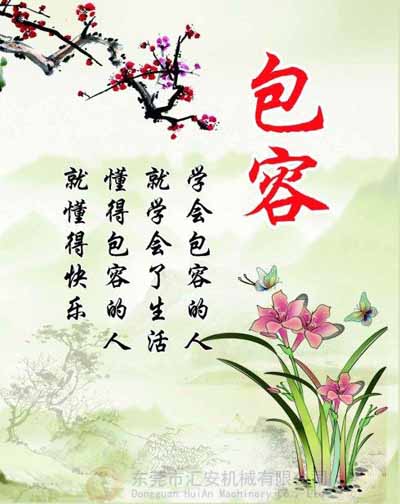 包容
学会包容的人
就学会了生活
懂得包容的人
就懂得快乐
东莞市汇安机械有限公司
Dongguan HuiAn Machinery Co., Ltd